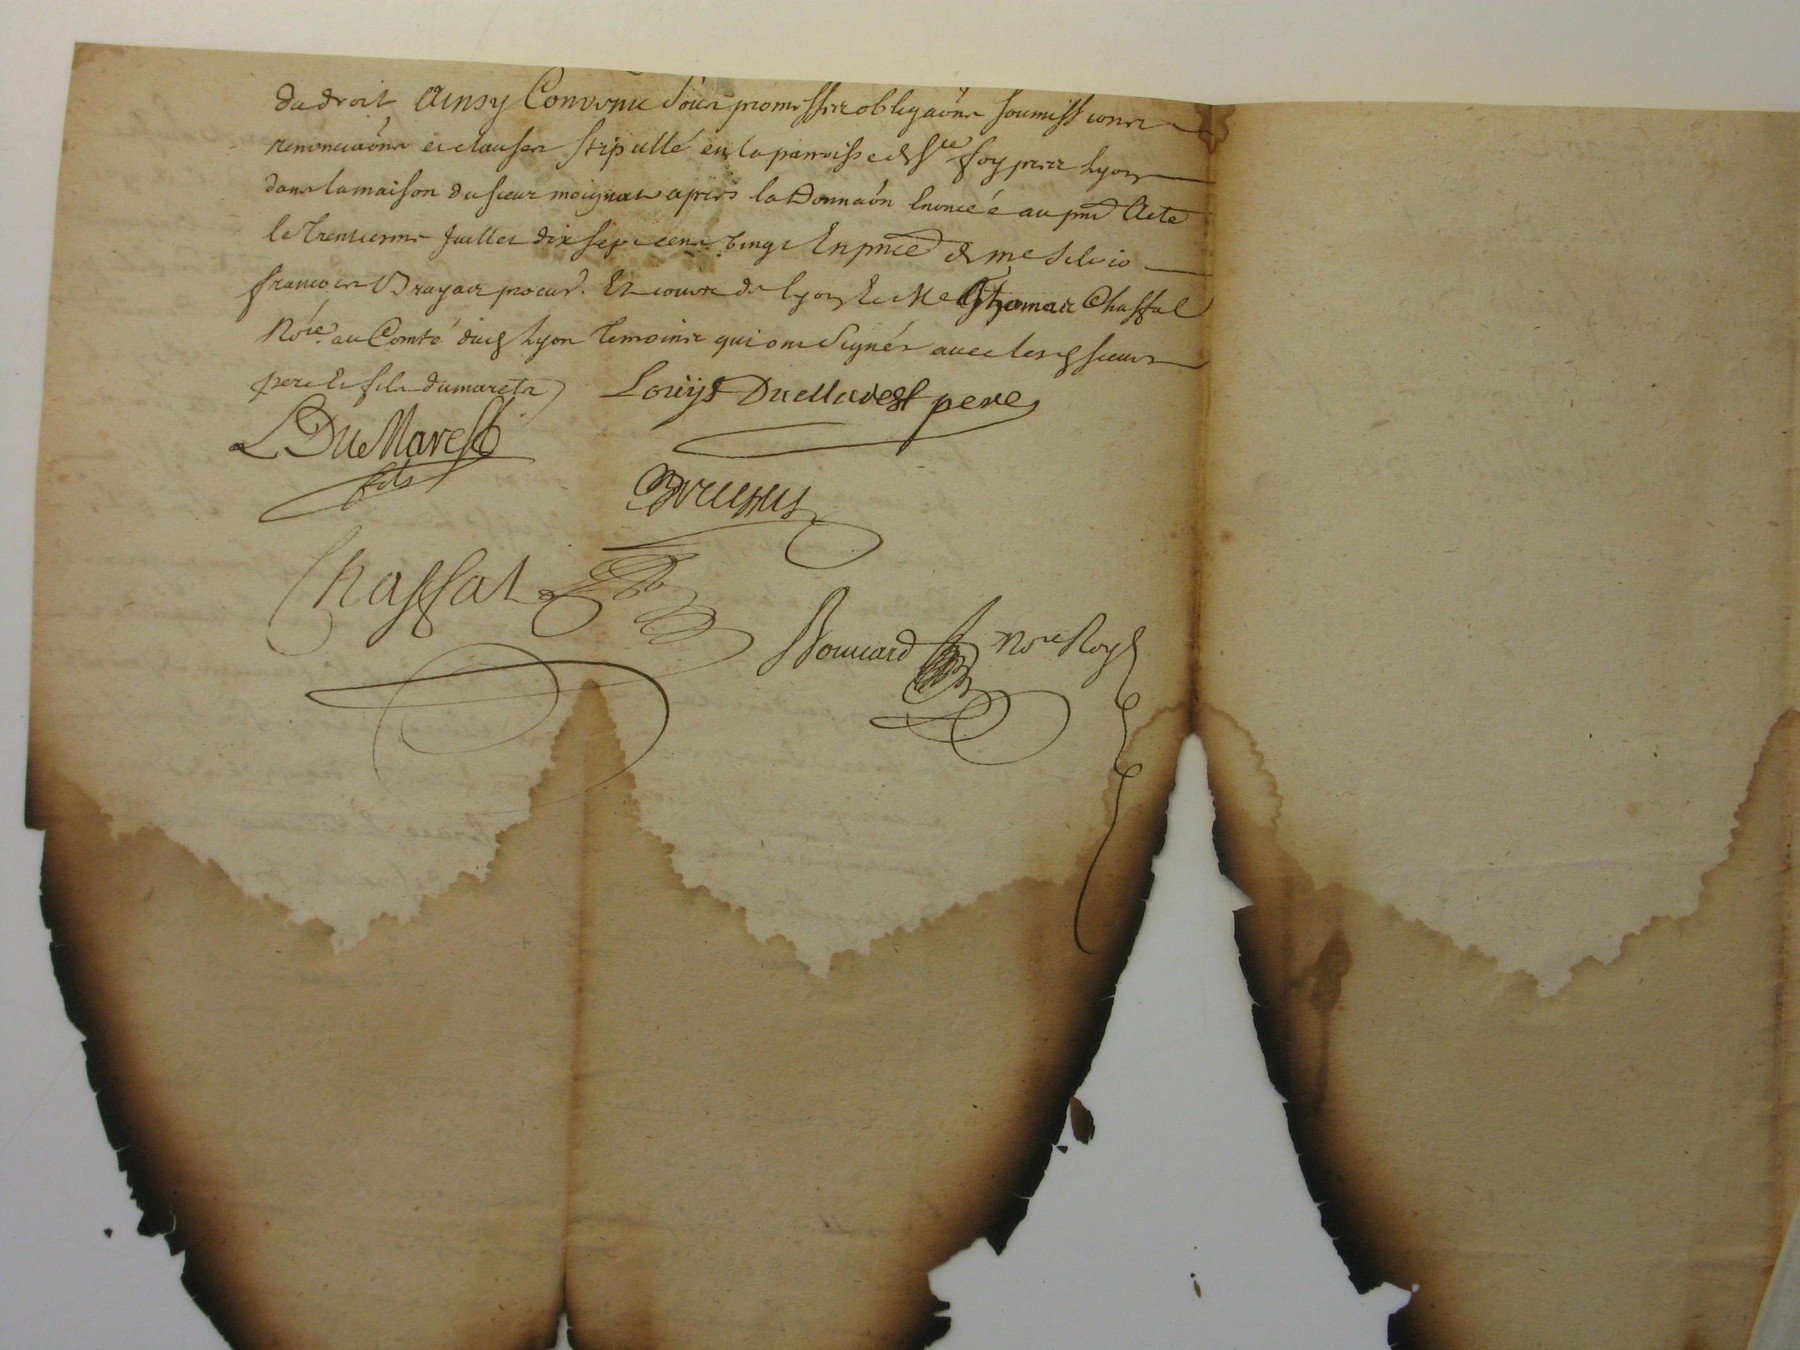 du droit Ainsy Convenu Sous promesses obligaōns soumissions
renonciaōns et clauses stipullé en la parroisse de Ste foy prez Lyon
dans la maison du sieur moignat apres la Donnaōn Enoncéé au pnt Acte
le trentieme Juillet dix sept cent vingt En pnce de me
françois Brayais procur. Es cours de Lyon Et Me Thomas Chassal
Nore. au Comté dud Lyon temoins qui ont Signés avec lesd sieurs
pere Et fils dumarets
Louÿs DuMarest pere
L DuMarest
fils
Chassal
Nore Royl